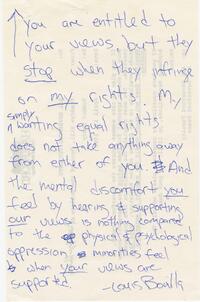 you are entitled to
your views, but they
stop when they infringe
on my rights. My
simply
wanting equal rights
does not take anything away
from either of you. And
the mental discomfort you
feel by hearing & supporting
our views is nothing compared
to the physical & psychological
oppression minorities feel
when your views are
supported. -Louis